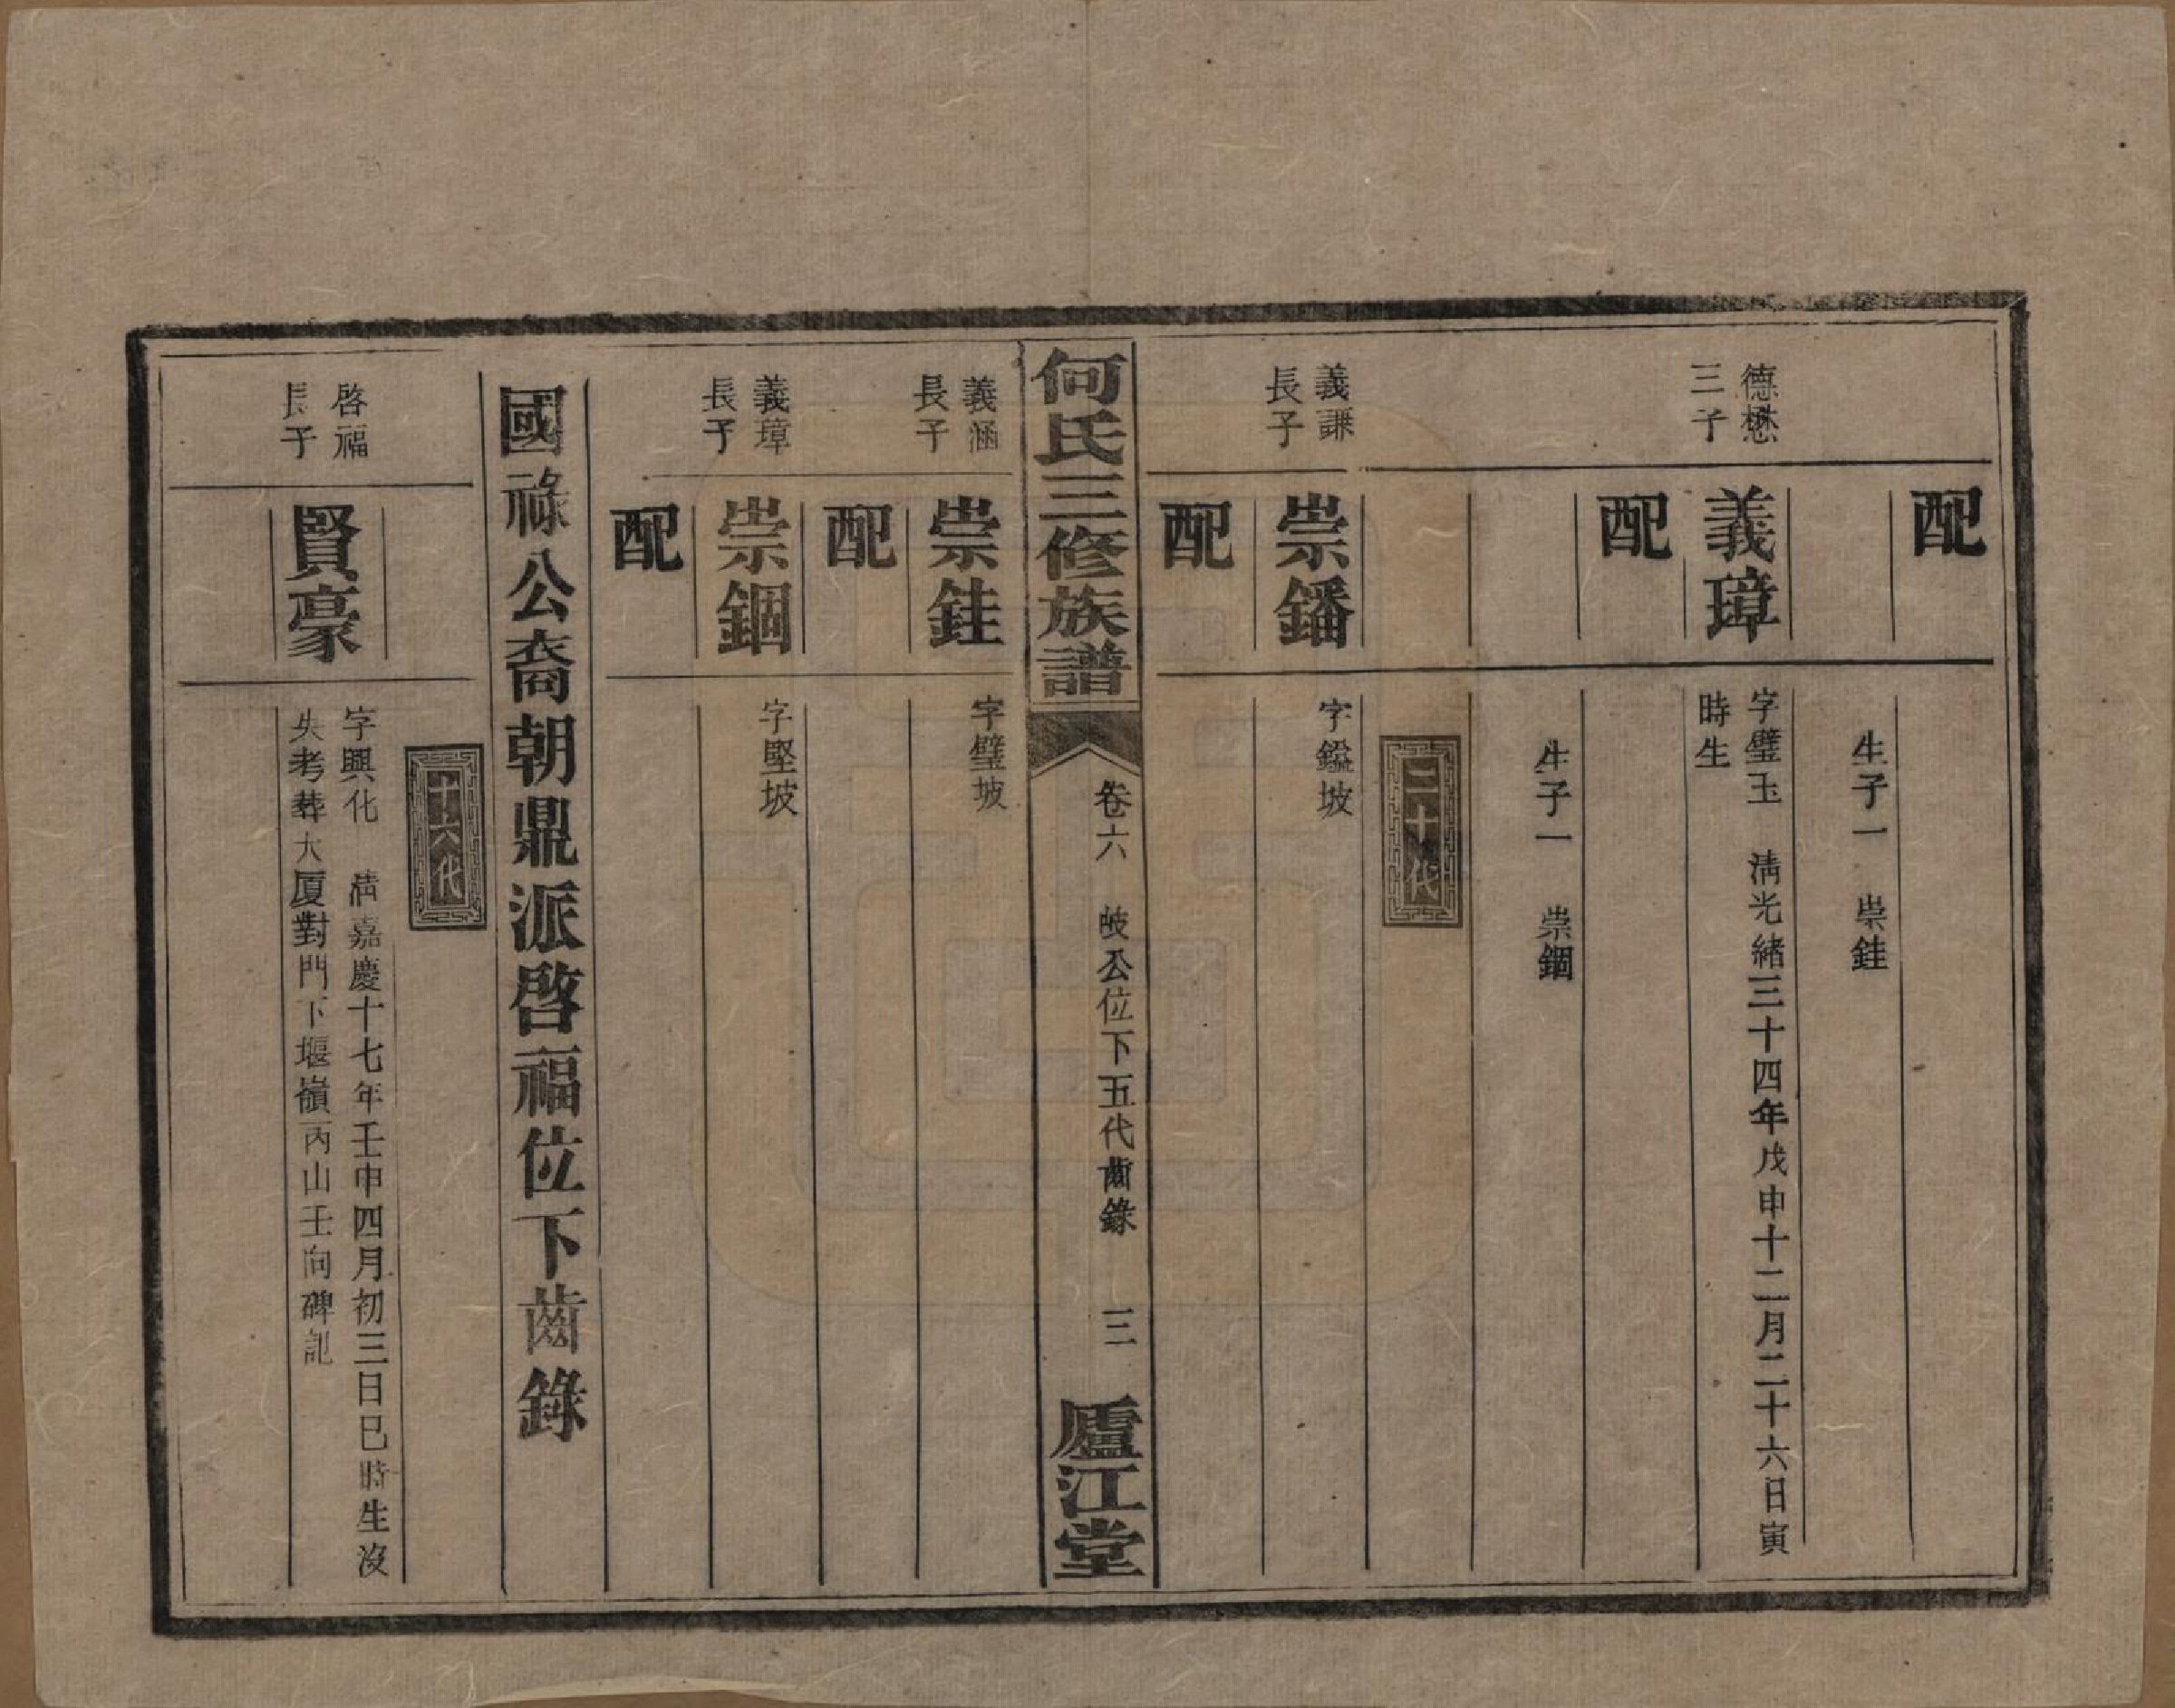 配
生子一　崇銈
德懋
三子
義璋
字璧玉　清光緒三十四年戊申十二月二十六日寅
時生
配
生子一　崇錮
二十代
義謙
長子
崇鐇
字鎰坡
配
何氏三修族譜
卷六　岐公位下五代齒錄　三
廬江堂
義涵
長子
崇銈
字璧坡
配
義璋
長子
崇錮
字堅坡
配
國祿公裔朝鼎派啓福位下齒錄
十六代
啓福
長子
賢豪
字興化　清嘉慶十七年壬申四月初三日巳時生沒
失考葬大厦對門下堰嶺丙山壬向碑記